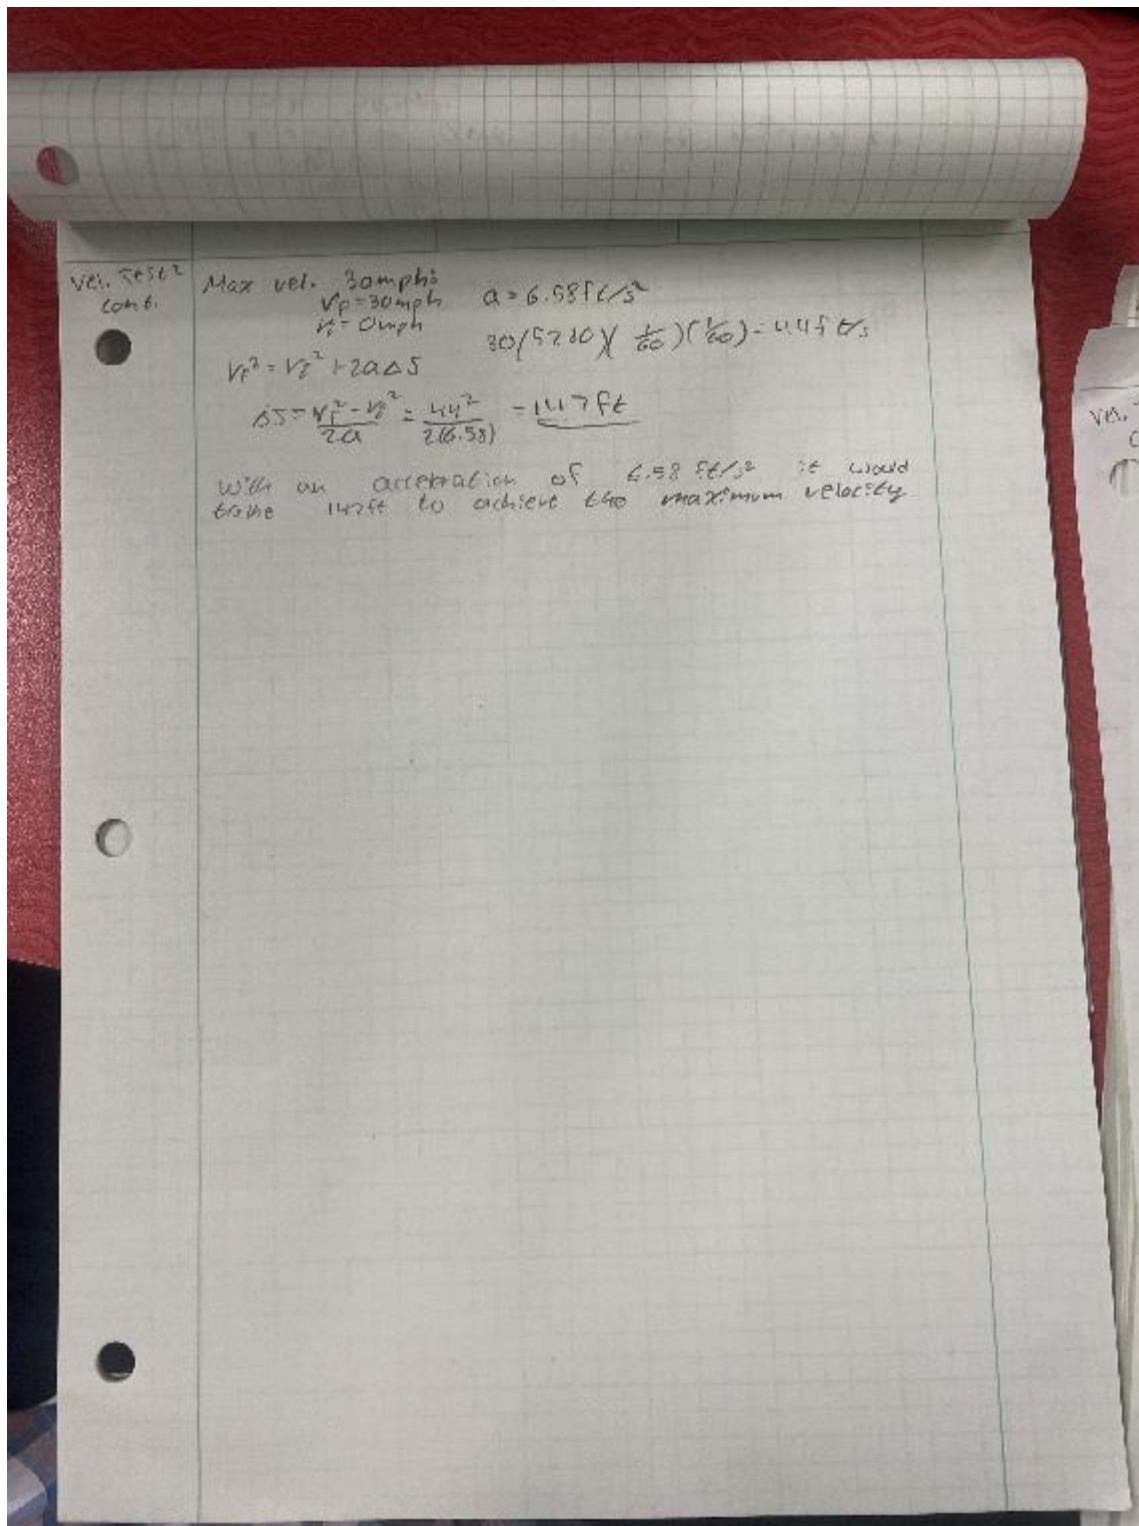 Vel. Test 2
cont.
Max vel. 30mph:
Vf=30mph
Vi=0mph
a=6.58ft/s²
30(5280)(1/60)(1/60)=44ft/s
Vf²=Vi²+2aΔS
ΔS=(Vf²-Vi²)/2a=44²/2(6.58)=147ft
with an acceleration of 6.58 ft/s² it would
take 147ft to achieve the maximum velocity
Vel.